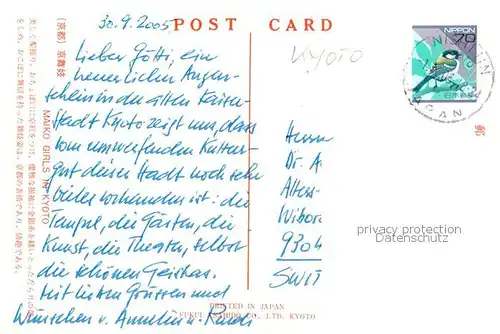 30.9.2005
POST CARD
KYOTO
Lieber Götti, ein
neuerlicher Augen-
schein in der alten Kaiser-
Stadt Kyoto zeigt uns, dass
vom umwerfenden Kultur-
gut dieser Stadt noch sehr
vieles vorhanden ist: die
Tempel, die Gärten, die
Kunst, die Theater, selbst
die schönen Geishas.
Mit lieben Grüssen und
Wünschen v. Annelin u. Ruedi
Herrn
Dr. A
Alters
Wibor
9304
SWIT
NIPPON
70
日本郵便
JAPAN
郵
privacy protection
Datenschutz
(京都) 京舞妓
MAIKO GIRLS IN KYOTO
PRINTED IN JAPAN
FUKUI ASAHIDO CO., LTD. KYOTO